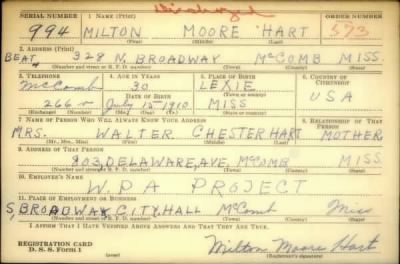 Discharged
SERIAL NUMBER 1. NAME (Print) ORDER NUMBER
994 MILTON MOORE HART 373
(First) (Middle) (Last)
2. ADDRESS (Print)
BEAT 328 N. BROADWAY McCOMB MISS.
(Number and street or R. F. D. number) (Town) (County) (State)
3. TELEPHONE 4. AGE IN YEARS 5. PLACE OF BIRTH 6. COUNTRY OF CITIZENSHIP
McComb 30 LEXIE
DATE OF BIRTH (Town or county)
266 July 15-1910 MISS USA
(Exchange) (Number) (Mo.) (Day) (Yr.) (State or country)
7. NAME OF PERSON WHO WILL ALWAYS KNOW YOUR ADDRESS 8. RELATIONSHIP OF THAT PERSON
MRS. WALTER CHESTER HART MOTHER
(Mr., Mrs., Miss) (First) (Middle) (Last)
9. ADDRESS OF THAT PERSON
203, DELAWARE, AVE, McCOMB MISS
(Number and street or R. F. D. number) (Town) (County) (State)
10. EMPLOYER'S NAME
W.P.A PROJECT
11. PLACE OF EMPLOYMENT OR BUSINESS
S, BROADWAY CITY, HALL McComb Miss
(Number and street or R. F. D. number) (Town) (County) (State)
I AFFIRM THAT I HAVE VERIFIED ABOVE ANSWERS AND THAT THEY ARE TRUE.
REGISTRATION CARD
D. S. S. Form 1 Milton Moore Hart
(Registrant's signature)